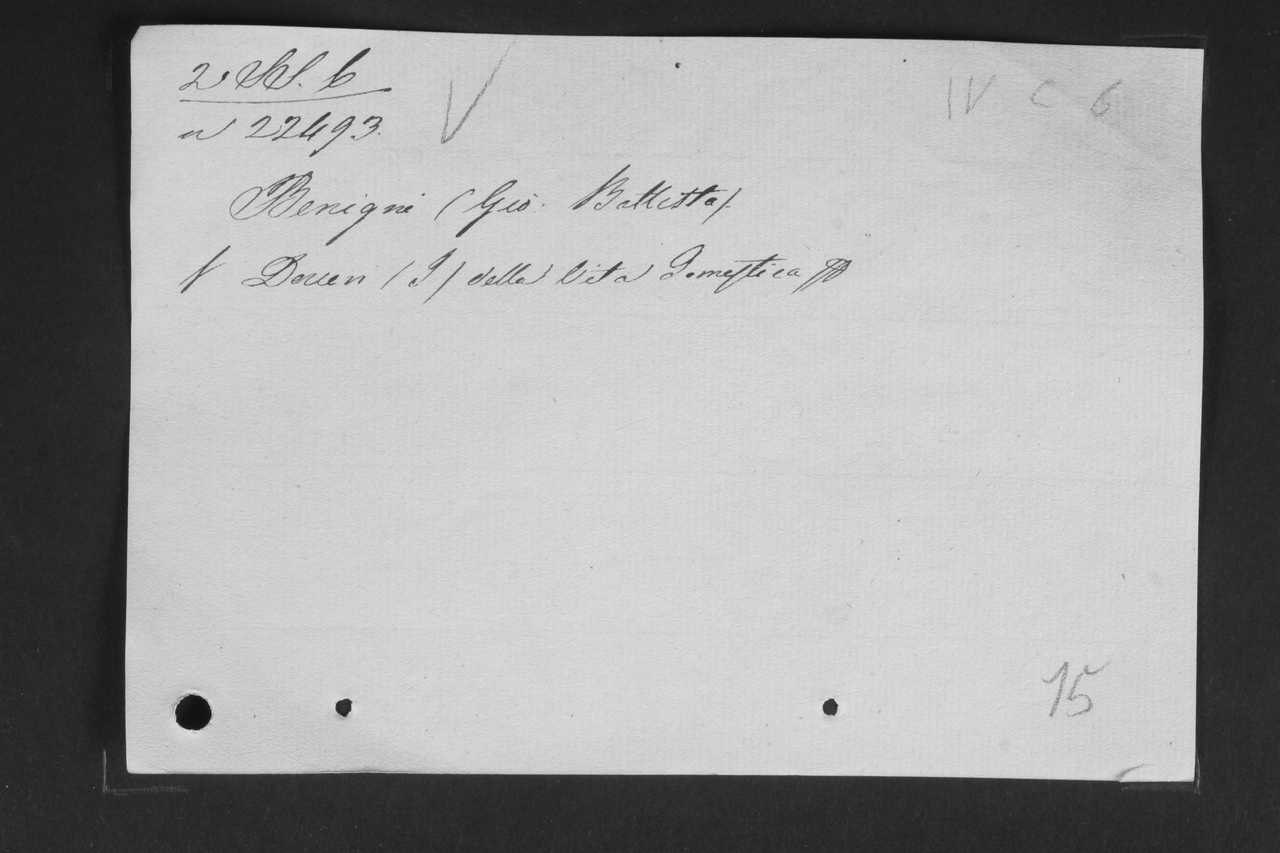 IV C 6
n 22493.
Benigni (Gio. Battista).
V Doveri (I) della Vita Domestica
15